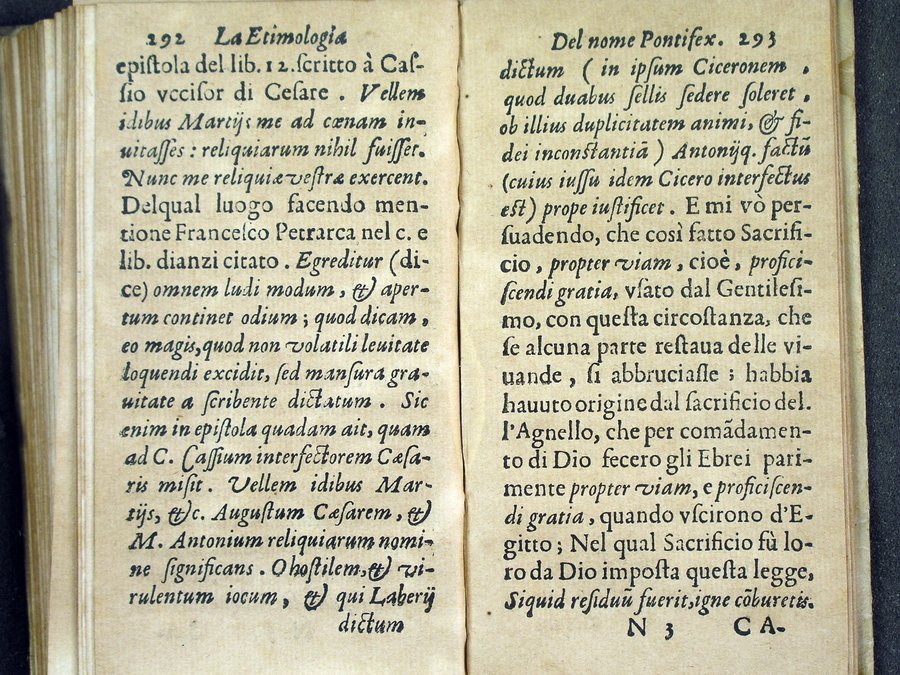 292 La Etimologia
epistola del lib. 12. scritto à Cas-
sio vccisor di Cesare . Vellem
idibus Martijs me ad cœnam in-
uitasses : reliquiarum nihil fuisset.
Nunc me reliquiæ vestræ exercent.
Delqual luogo facendo men-
tione Francesco Petrarca nel c. e
lib. dianzi citato . Egreditur (di-
ce) omnem ludi modum , & aper-
tum continet odium ; quod dicam ,
eo magis, quod non volatili leuitate
loquendi excidit, sed mansura gra-
uitate a scribente dictatum . Sic
enim in epistola quadam ait, quam
ad C. Cassium interfectorem Cæsa-
ris misit . Vellem idibus Mar-
tijs, &c. Augustum Cæsarem , &
M. Antonium reliquiarum nomi-
ne significans . O hostilem, & vi-
rulentum iocum , & qui Laberij
dictum
Del nome Pontifex. 293
dictum ( in ipsum Ciceronem ,
quod duabus sellis sedere soleret ,
ob illius duplicitatem animi, & fi-
dei inconstantiã ) Antonijq. factũ
(cuius iussu idem Cicero interfectus
est) prope iustificet . E mi vò per-
suadendo, che così fatto Sacrifi-
cio , propter viam , cioè , profici-
scendi gratia, vsato dal Gentilesi-
mo, con questa circostanza, che
se alcuna parte restaua delle vi-
uande , si abbruciasse ; habbia
hauuto origine dal sacrificio del.
l'Agnello, che per comãdamen-
to di Dio fecero gli Ebrei pari-
mente propter viam, e proficiscen-
di gratia , quando vscirono d'E-
gitto ; Nel qual Sacrificio fù lo-
ro da Dio imposta questa legge,
Siquid residuũ fuerit, igne cõburetis.
N 3 CA-